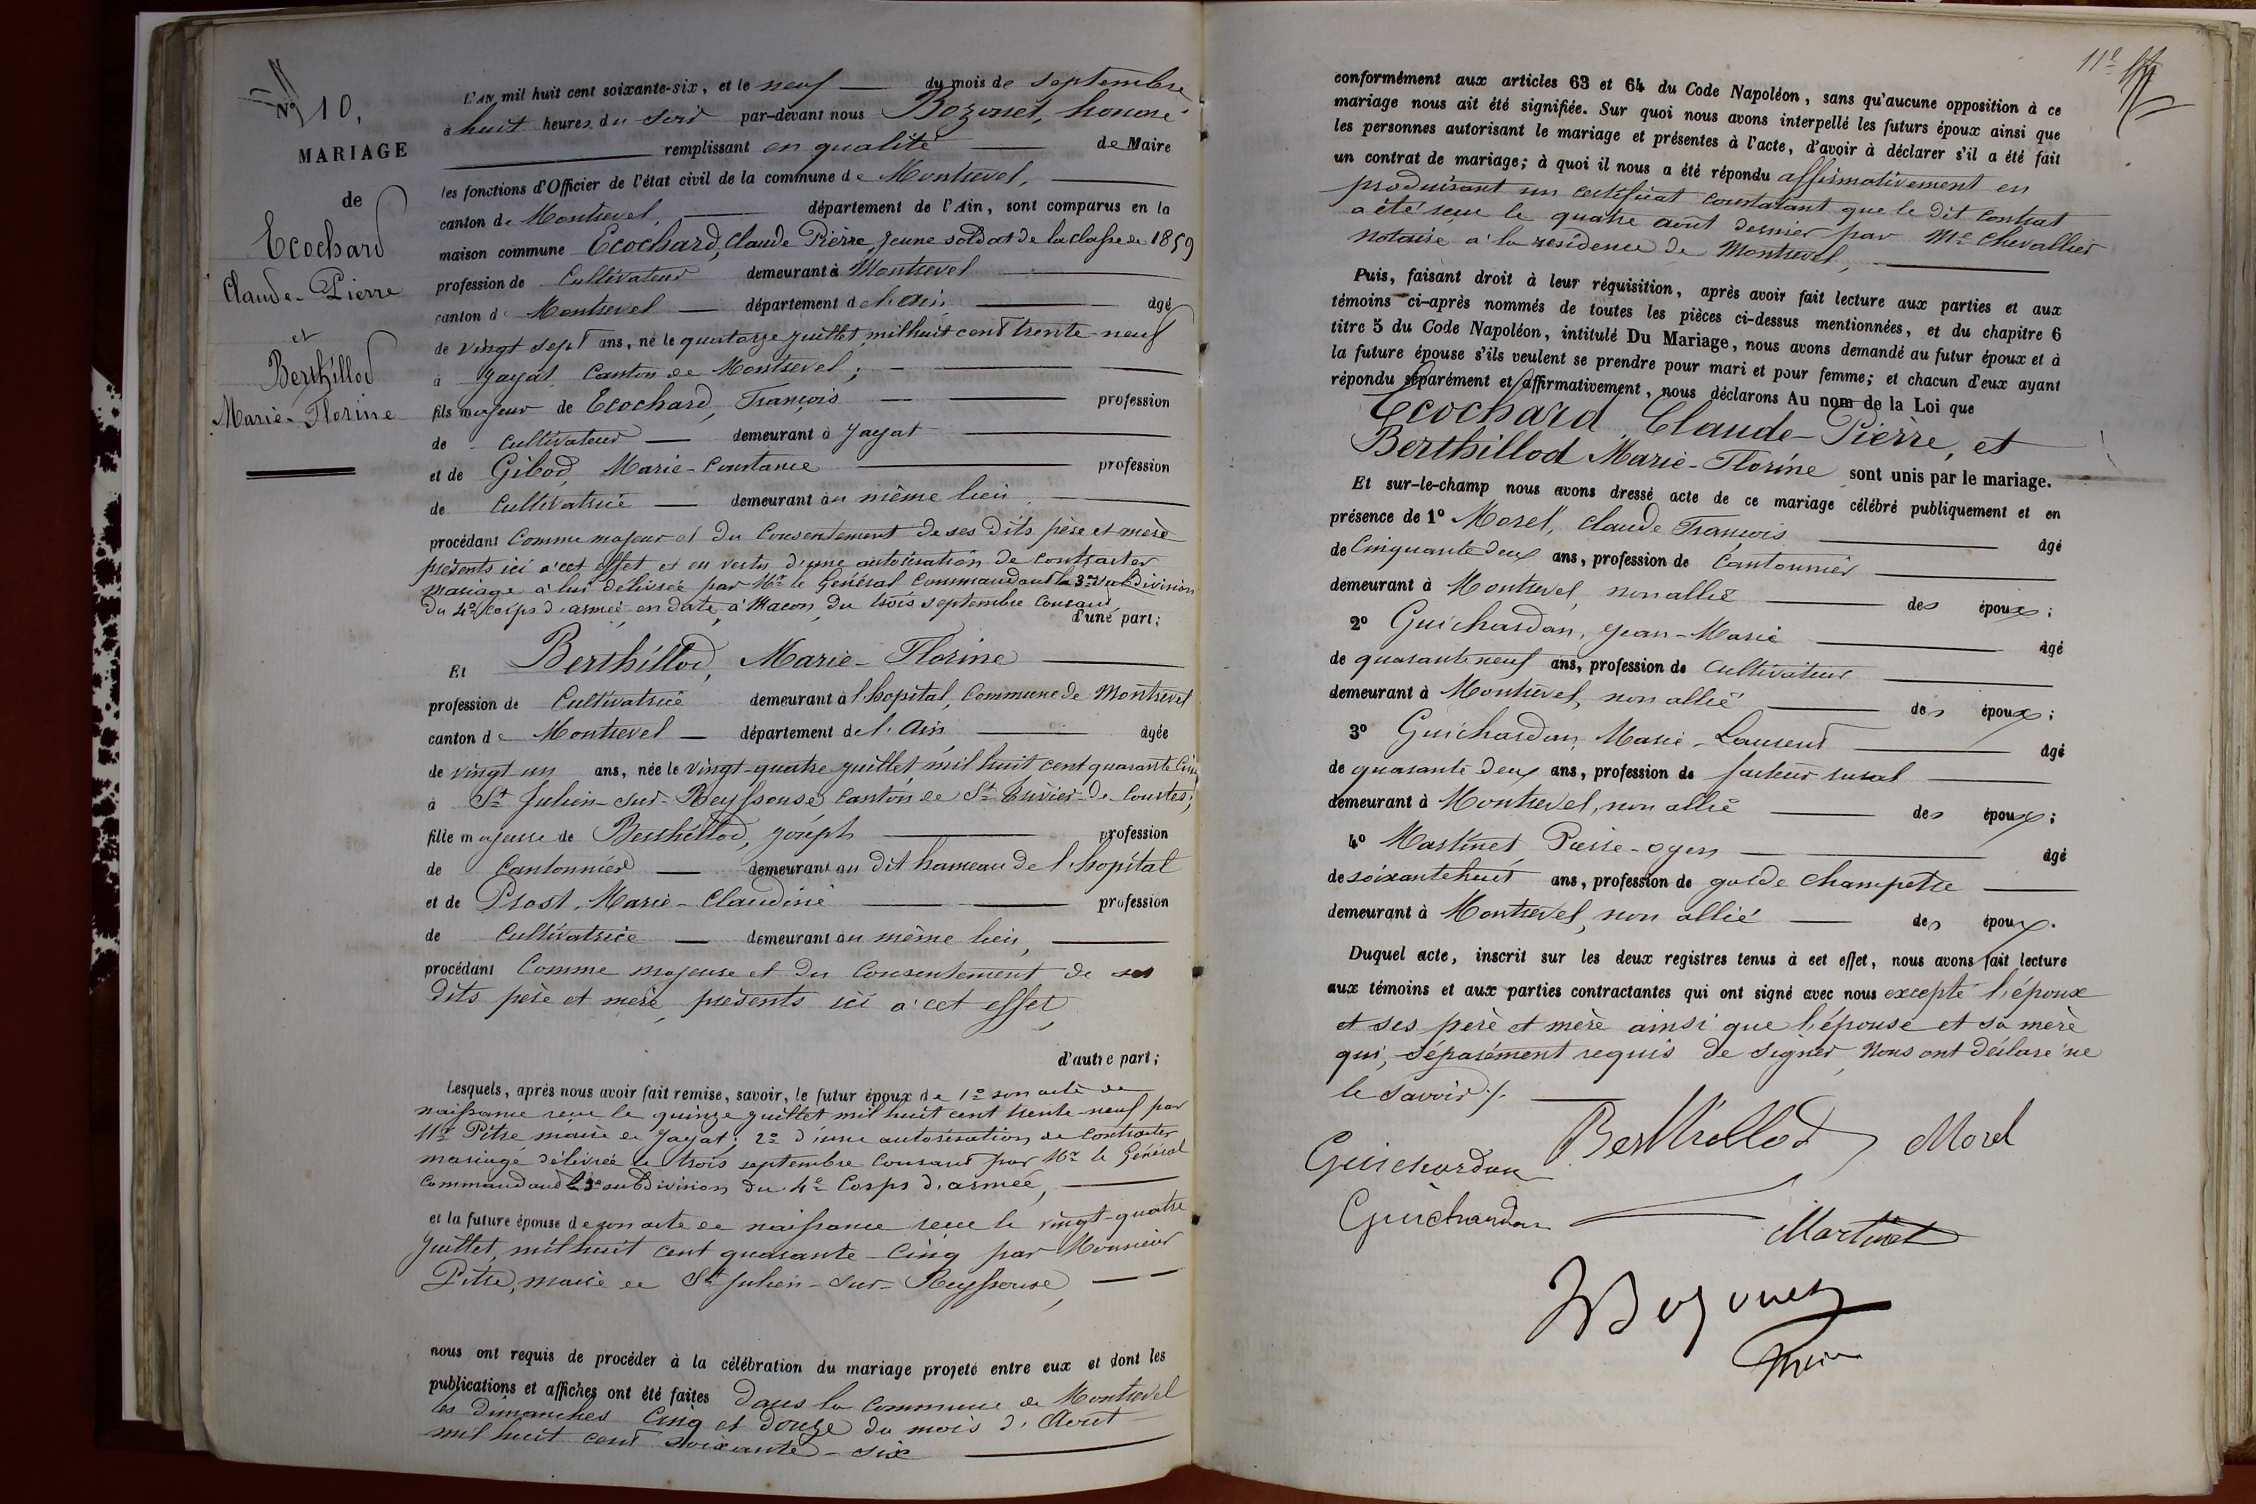 N° 10.
MARIAGE
de
Ecochard
Claude-Pierre
et
Berthillod
Marie-Florine
L'AN mil huit cent soixante-six, et le neuf du mois de septembre
à huit heures du soir par-devant nous Bozonet, honoré
remplissant en qualité de Maire
les fonctions d'Officier de l'état civil de la commune de Montrevel,
canton de Montrevel, département de l'Ain, sont comparus en la
maison commune Ecochard, Claude Pierre jeune soldat de la classe de 1859
profession de Cultivateur demeurant à Montrevel
canton de Montrevel département de l'Ain âgé
de vingt sept ans, né le quatorze juillet mil huit cent trente-neuf
à Jayat, Canton de Montrevel;
fils majeur de Ecochard, François profession
de Cultivateur demeurant à Jayat
et de Gibod, Marie-Constance profession
de Cultivatrice demeurant au même lieu
procédant Comme majeur et du Consentement de ses dits père et mère
présents ici à cet effet et en vertu d'une autorisation de Contracter
mariage à lui délivrée par Mr le Général Commandant la 3me subdivision
du 4e Corps d'armée, en date, à Macon, du trois septembre Courant,
d'une part;
Et Berthillod, Marie-Florine
profession de Cultivatrice demeurant à l'hopital, Commune de Montrevel
canton de Montrevel département de l'Ain âgée
de vingt un ans, née le vingt-quatre juillet mil huit cent quarante Cinq
à St Julien-sur-Reyssouse Canton de St Trivier-de Courtes;
fille majeure de Berthillod, Joseph profession
de Cantonnier demeurant au dit hameau de l'hopital
et de Prost, Marie-Claudine profession
de Cultivatrice demeurant au même lieu,
procédant Comme majeure et du Consentement de ses
dits père et mère, présents ici à cet effet,
d'autre part;
Lesquels, après nous avoir fait remise, savoir, le futur époux de 1° son acte de
naissance reçu le quinze juillet mil huit cent trente-neuf par
Mr Pitre maire de Jayat; 2° d'une autorisation de Contracter
mariage délivrée le trois septembre Courant par Mr le Général
Commandant la 3e subdivision du 4e Corps d'armée,
et la future épouse de son acte de naissance reçu le vingt-quatre
juillet mil huit cent quarante-Cinq par Monsieur
Pitre, maire de St Julien-sur-Reyssouse,
nous ont requis de procéder à la célébration du mariage projeté entre eux et dont les
publications et affiches ont été faites dans la Commune de Montrevel
les dimanches Cinq et douze du mois d'Aout
mil huit cent soixante-six
11e
conformément aux articles 63 et 64 du Code Napoléon, sans qu'aucune opposition à ce
mariage nous ait été signifiée. Sur quoi nous avons interpellé les futurs époux ainsi que
les personnes autorisant le mariage et présentes à l'acte, d'avoir à déclarer s'il a été fait
un contrat de mariage; à quoi il nous a été répondu affirmativement en
produisant un certificat constatant que le dit Contrat
a été reçu le quatre août dernier par Me Chevallier
notaire à la residence de Montrevel,
Puis, faisant droit à leur réquisition, après avoir fait lecture aux parties et aux
témoins ci-après nommés de toutes les pièces ci-dessus mentionnées, et du chapitre 6
titre 5 du Code Napoléon, intitulé Du Mariage, nous avons demandé au futur époux et à
la future épouse s'ils veulent se prendre pour mari et pour femme; et chacun d'eux ayant
répondu séparément et affirmativement, nous déclarons Au nom de la Loi que
Ecochard Claude-Pierre, et
Berthillod Marie-Florine sont unis par le mariage.
Et sur-le-champ nous avons dressé acte de ce mariage célébré publiquement et en
présence de 1° Morel, Claude François âgé
de Cinquante deux ans, profession de Cantonnier
demeurant à Montrevel, non allié des époux;
2° Guichardan, Jean-Marie âgé
de quarante neuf ans, profession de Cultivateur
demeurant à Montrevel, non allié des époux;
3° Guichardan, Marie-Laurent âgé
de quarante deux ans, profession de facteur rural
demeurant à Montrevel, non allié des époux;
4° Martinet Pierre-oyen âgé
de soixante huit ans, profession de garde Champetre
demeurant à Montrevel, non allié des époux.
Duquel acte, inscrit sur les deux registres tenus à cet effet, nous avons fait lecture
aux témoins et aux parties contractantes qui ont signé avec nous excepté l'époux
et ses père et mère ainsi que l'épouse et sa mère
qui, séparément requis de signer, nous ont déclaré ne
le savoir ./.
Guichardan Berthillod Morel
Guichardan Martinet
Bozonet